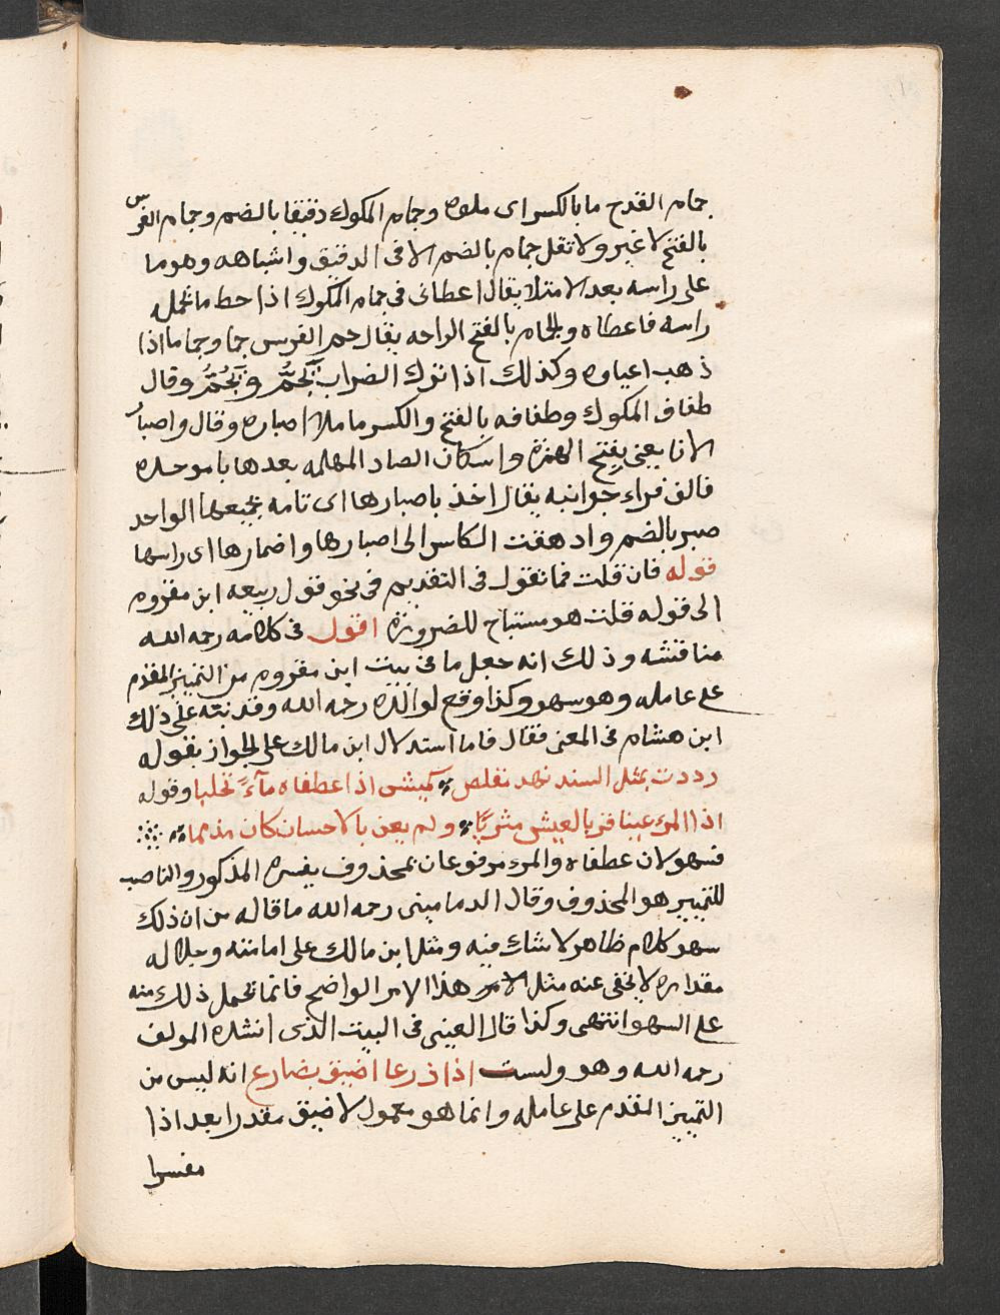 جمام القدح ما بالكسر اى ملوه وجمام المكوك دقيقا بالضم وجمام الفرس
بالفتح لا غير ولا تقل جمام بالضم الا فى الدقيق واشباهه وهو ما
على راسه بعد الامتلا يقال اعطانى جمام المكوك اذا حط ما تحمله
راسه فاعطاه والجمام بالفتح الراحه يقال جم الفرس جما وجماما اذا
ذهب اعياوه وكذلك اذا ترك الضراب يَجِمُّ ويَجُمُّ وقال
طفاف المكوك وطفافه بالفتح والكسر ما ملا اصباره وقال واصبار
الانا يعنى بفتح الهمزة واسكان الصاد المهمله بعدها با موحده
فالف فراء جوانبه يقال اخذ باصبارها اى تامه بجميعها الواحد
صبر بالضم وادهقت الكاس الى اصبارها واضمارها اى راسها
قوله فان قلت فما تقول فى التقديم فى نحو قول ربيعه ابن مقروم
الى قوله قلت هو مستباح للضرورة اقول فى كلامه رحمه الله
مناقشه وذلك انه جعل ما فى بيت ابن مقروم من التمييز المقدم
على عامله وهو سهو وكذا وقع لوالده رحمه الله وقد نبه على ذلك
ابن هشام فى المغنى فقال فاما استدلال ابن مالك على الجواز بقوله
رددت بمثل السيد نهد مقلص كميش اذا عطفاه مآءً تحلبا وقوله
اذا المرء عينا قر بالعيش مثريًا ولم يعن بالاحسان كان مذمما
فسهو لان عطفاه والمرء مرفوعان بمحذوف يفسره المذكور والناصب
للتمييز هو المحذوف وقال الدمامينى رحمه الله ما قاله من ان ذلك
سهو كلام ظاهر لا شك فيه ومثل ابن مالك على امامته وجلاله
مقداره لا يخفى عنه مثل هذا الامر الواضح فانما تحمل ذلك منه
على السهو انتهى وكذا قال العينى فى البيت الذى انشده المولف
رحمه الله وهو ولست اذا ذرعا اضيق بضارع انه ليس من
التمييز المقدم على عامله وانما هو معمول لاضيق مقدرا بعد اذا
مفسرا